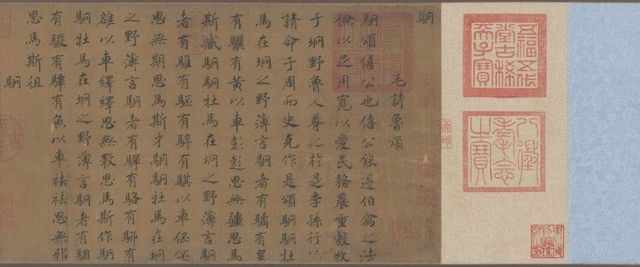 五福五代堂古稀天子寶
八徵耄念之寶
駉
毛詩魯頌
駉頌僖公也僖公能遵伯禽之法
儉以足用寬以愛民務農重穀牧
于坰野魯人尊之於是季孫行父
請命于周而史克作是頌駉駉牡
馬在坰之野薄言駉者有驈有皇
有驪有黃以車彭彭思無疆思馬
斯臧駉駉牡馬在坰之野薄言駉
者有騅有駓有騂有騏以車伾伾
思無期思馬斯才駉駉牡馬在坰
之野薄言駉者有驒有駱有駵有
雒以車繹繹思無斁思馬斯作駉
駉牡馬在坰之野薄言駉者有駰
有騢有驔有魚以車袪袪思無邪
思馬斯徂
駉